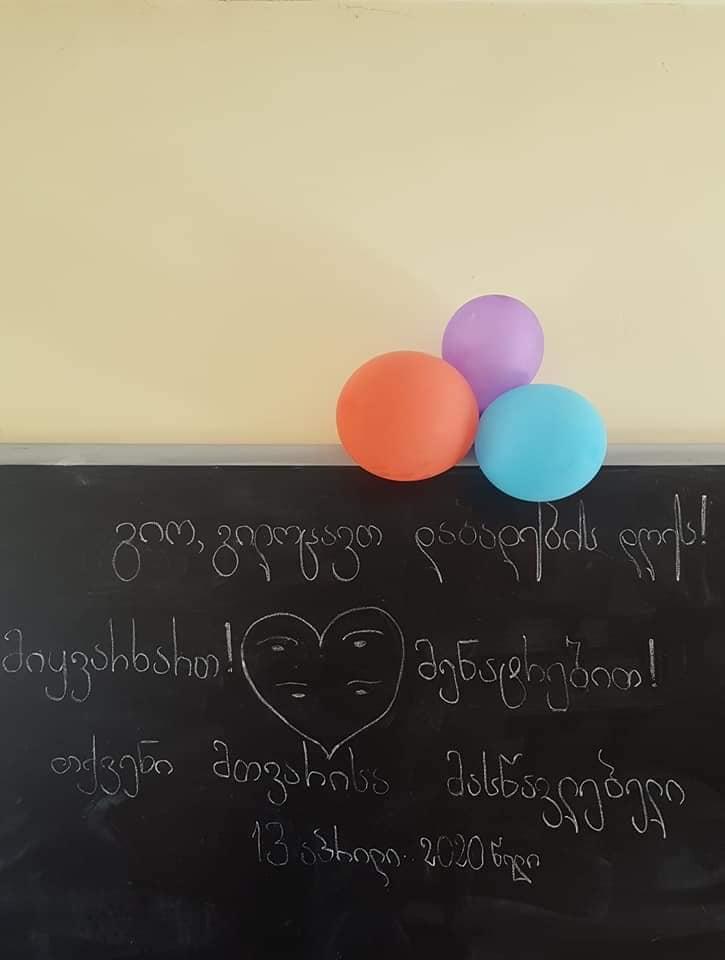 გიო, გილოცავთ დაბადების დღეს!
მიყვარხართ! მენატრებით!
თქვენი მთვარისა მასწავლებელი
13 აპრილი. 2020 წელი